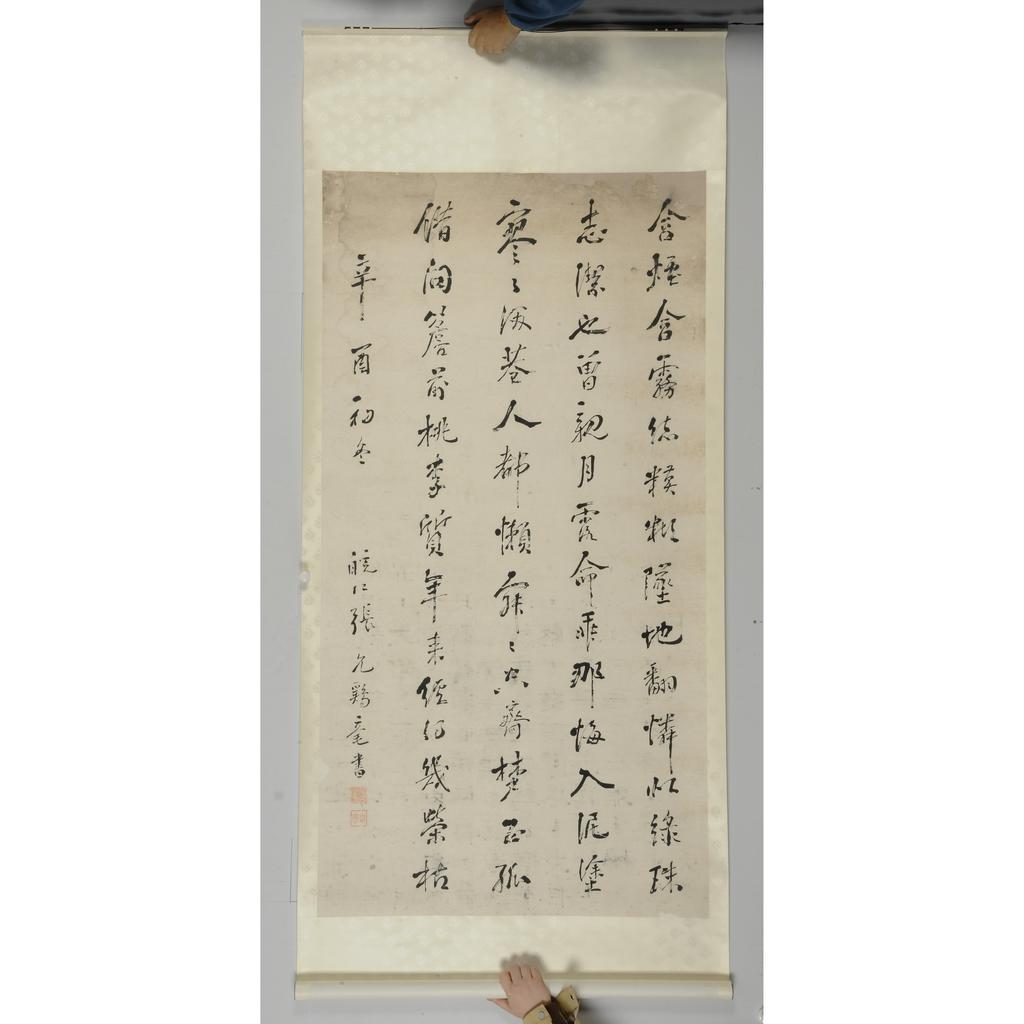 含煙含霧總糢糊墜地翻憐似綠珠
志潔也曾親月露命乖那悔入泥塗
寥々深巷人都懶寂々空齋夢正孤
借問簷前桃李質年來經得幾榮枯
辛酉初冬
皖江張允鷄毫書